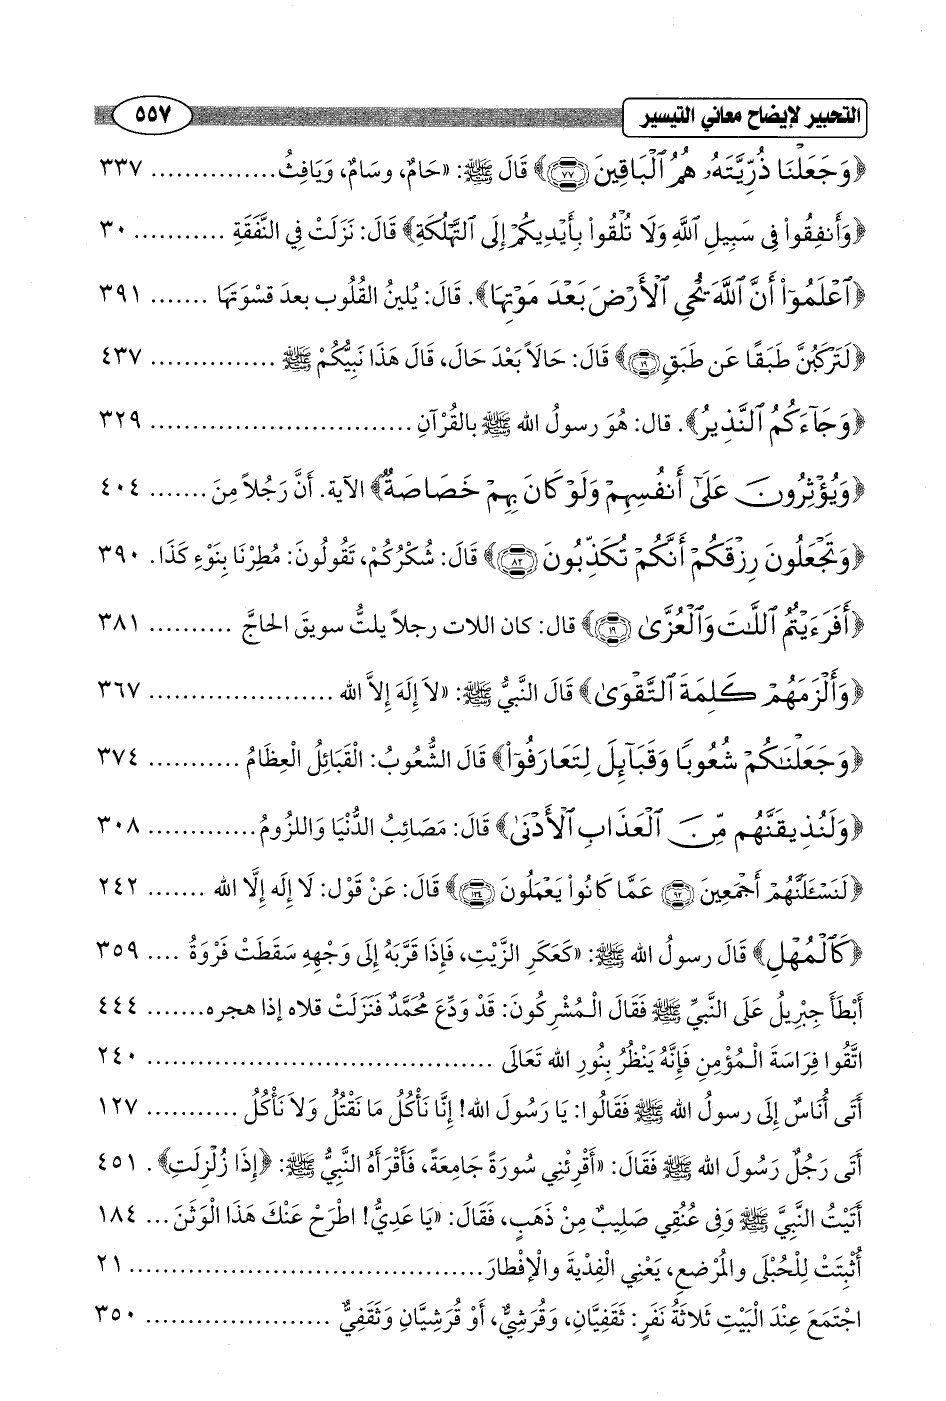 التحبير لإيضاح معاني التيسير ٥٥٧
﴿وَجَعَلْنَا ذُرِّيَّتَهُۥ هُمُ ٱلْبَاقِينَ ٧٧﴾ قَالَ ﷺ: «حَامٌ، وسَامٌ، وَيَافِثُ............... ٣٣٧
﴿وَأَنفِقُوا۟ فِى سَبِيلِ ٱللَّهِ وَلَا تُلْقُوا۟ بِأَيْدِيكُمْ إِلَى ٱلتَّهْلُكَةِ﴾ قَالَ: نَزَلَتْ فِي النَّفَقَةِ ........... ٣٠
﴿ٱعْلَمُوٓا۟ أَنَّ ٱللَّهَ يُحْىِ ٱلْأَرْضَ بَعْدَ مَوْتِهَا﴾. قَالَ: يُلينُ القُلُوب بعدَ قسْوَتَها ....... ٣٩١
﴿لَتَرْكَبُنَّ طَبَقًا عَن طَبَقٍ ١٩﴾ قَالَ: حَالاً بَعْدَ حَال، قَالَ هَذَا نَبِيُّكُمْ ﷺ ............... ٤٣٧
﴿وَجَآءَكُمُ ٱلنَّذِيرُ﴾. قال: هُوَ رسولُ الله ﷺ بالقُرْآنِ ................................ ٣٢٩
﴿وَيُؤْثِرُونَ عَلَىٰٓ أَنفُسِهِمْ وَلَوْ كَانَ بِهِمْ خَصَاصَةٌ﴾ الآية. أَنَّ رَجُلاً مِنَ ....... ٤٠٤
﴿وَتَجْعَلُونَ رِزْقَكُمْ أَنَّكُمْ تُكَذِّبُونَ ٨٢﴾ قَالَ: شُكْرُكُمْ، تَقُولُونَ: مُطِرْنَا بِنَوْءِ كَذَا . ٣٩٠
﴿أَفَرَءَيْتُمُ ٱللَّٰتَ وَٱلْعُزَّىٰ ١٩﴾ قال: كان اللات رجلاً يلتُّ سويقَ الحاجَّ .......... ٣٨١
﴿وَأَلْزَمَهُمْ كَلِمَةَ ٱلتَّقْوَىٰ﴾ قَالَ النَّبيُّ ﷺ: «لاَ إِلَهَ إِلاَّ الله ...................... ٣٦٧
﴿وَجَعَلْنَٰكُمْ شُعُوبًا وَقَبَآئِلَ لِتَعَارَفُوٓا۟﴾ قَالَ الشُّعُوبُ: الْقَبَائِلُ الْعِظَامُ ........... ٣٧٤
﴿وَلَنُذِيقَنَّهُم مِّنَ ٱلْعَذَابِ ٱلْأَدْنَىٰ﴾ قَالَ: مَصَائِبُ الدُّنْيَا وَاللزُومُ............. ٣٠٨
﴿لَنَسْـَٔلَنَّهُمْ أَجْمَعِينَ ٩٢ عَمَّا كَانُوا۟ يَعْمَلُونَ﴾ قَالَ: عَنْ قَوْل: لَا إِلَه إِلَّا الله ....... ٢٤٢
﴿كَٱلْمُهْلِ﴾ قَالَ رسولُ الله ﷺ: «كَعَكَرِ الزَّيْتِ، فَإِذَا قَرَّبَهُ إِلَى وَجْهِهِ سَقَطَتْ فَرْوَةُ .... ٣٥٩
أَبْطَأَ جِبْرِيلُ عَلَى النَّبيِّ ﷺ فَقَالَ الْمُشْرِكُونَ: قَدْ وَدِّعَ مُحَمَّدٌ فَنَزَلَتْ قلاه إذا هجره....... ٤٤٤
اتَّقُوا فِرَاسَةَ الْمُؤْمِنِ فَإِنَّهُ يَنْظُرُ بِنُورِ الله تَعَالَى .......................................... ٢٤٠
أَتَى أُنَاسٌ إِلَى رسولُ الله ﷺ فَقَالُوا: يَا رَسُولَ الله! إِنَّا نَأْكُلُ مَا نَقْتُلُ وَلاَ نَأْكُلُ ........... ١٢٧
أَتَى رَجُلٌ رَسُولَ الله ﷺ فَقَالَ: «أَقْرِئْنِي سُورَةً جَامِعَةً، فَأَقْرَأَهُ النَّبِيُّ ﷺ: ﴿إِذَا زُلْزِلَتِ﴾ . ٤٥١
أَتَيْتُ النَّبِيَّ ﷺ وَفِى عُنُقِي صَلِيبٌ مِنْ ذَهَبٍ، فَقَالَ: «يَا عَدِيُّ! اطْرَحْ عَنْكَ هَذَا الْوَثَنَ ... ١٨٤
أُثْبِتَتْ لِلْحُبْلَى والمُرْضع، يَعْنِي الْفِدْيَةَ والْإفْطارَ........................................... ٢١
اجْتَمَعَ عِنْدَ الْبَيْتِ ثَلاثَةُ نَفَرٍ: ثَقَفِيَّانِ، وَقُرَشِيٌّ، أَوْ قُرَشِيَّانِ وَثَقَفِيٌّ ...................... ٣٥٠